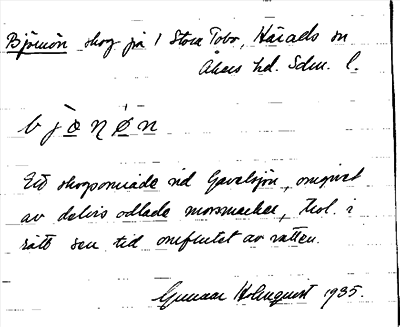 Björnön skog på 1 Stora Tobo, Härads sn
Åkers hd. Sdm. l.
b j ö n ø n
Ett skogsområde vid Gavelsjön, omgivet
av delvis odlade mossmarker, trol. i
rätt sen tid omflutet av vatten.
Gunnar Holmquist 1935.